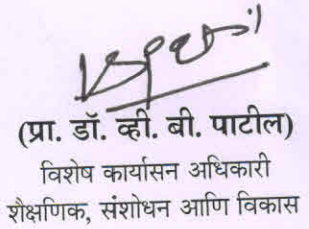 (प्रा. डॉ. व्ही. बी. पाटील)
विशेष कार्यासन अधिकारी
शैक्षणिक, संशोधन आणि विकास